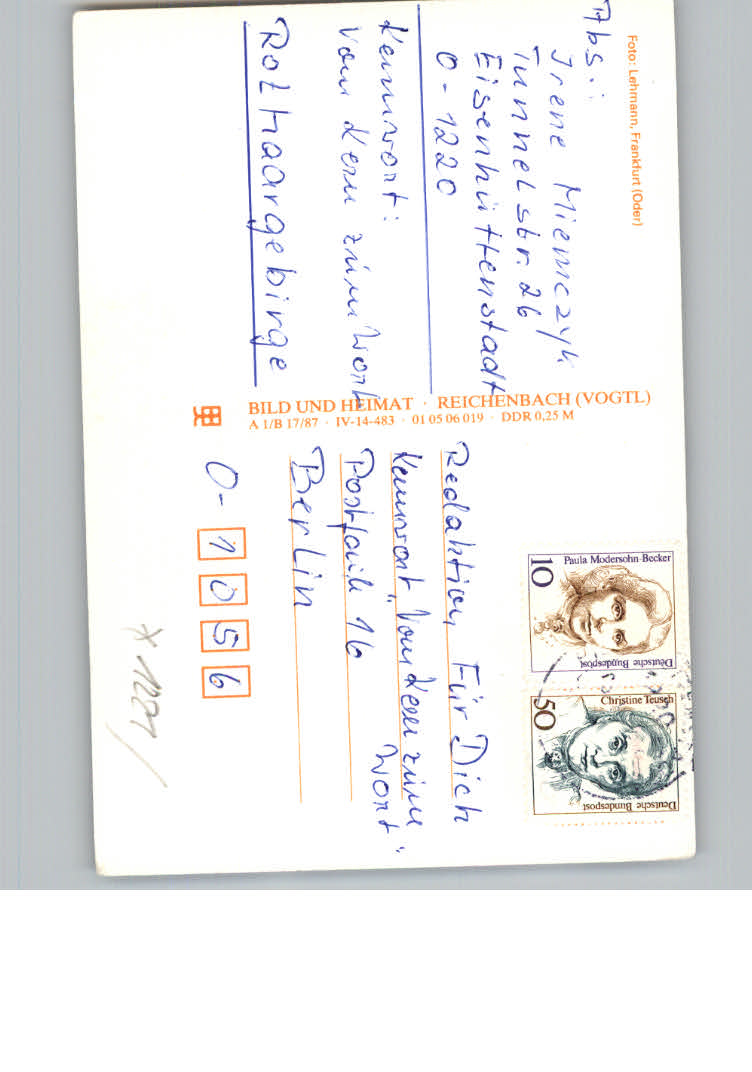 Foto: Lehmann, Frankfurt (Oder)
Abs.:
Irene Miemczyk
Tunnelstr. 26
Eisenhüttenstadt
O-1220
Kennwort:
Vom Kern zum Wort
Rothaargebirge
BILD UND HEIMAT · REICHENBACH (VOGTL)
A 1/B 17/87 · IV-14-483 · 01 05 06 019 · DDR 0,25 M
Paula Modersohn-Becker
10
Deutsche Bundespost
Christine Teusch
50
Deutsche Bundespost
Redaktion Für Dich
Kennwort „Vom Kern zum
Wort"
Postfach 16
Berlin
O-1056